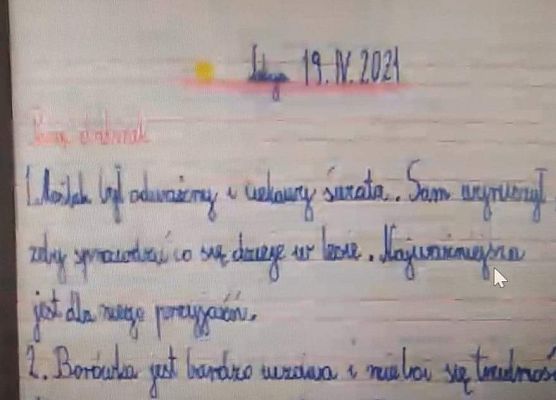 19.IV.2021
był odważny i ciekawy świata. Sam wyruszył
żeby sprawdzić co się dzieje w lesie. Najważniejsza
jest dla niego przyjaźń.
2. Borówka jest bardzo wrażliwa i nie boi się trudności